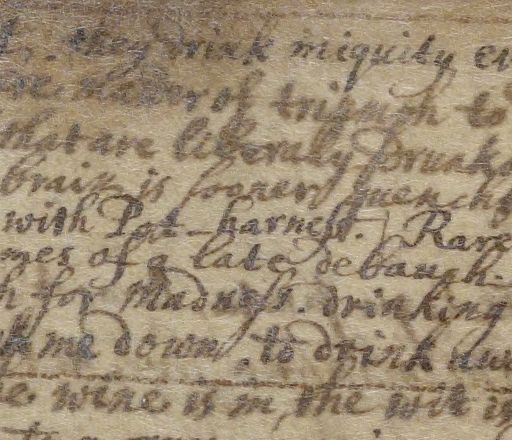 they drink iniquity
matter of triumph to
that are literally Drunk
brain is sooner quench
with Pot-harness. Rare
of a late debauch.
for Madness. drinking
me down, to drink
wine is in, the wit is